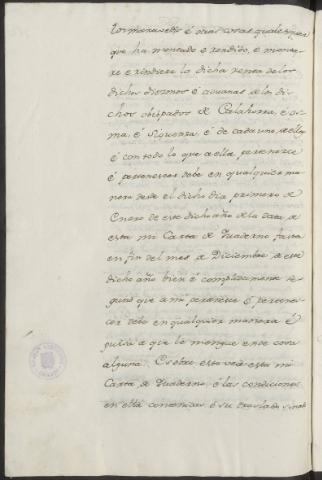 los maravedis é otras cosas qualesquiera
que ha montado e rendido, é monta-
re e rindiere la dicha renta de los
dichos diezmos é aduanas de los di-
chos obispados de Calahorra, é Os-
ma, é Siguenza, é de cada uno de ellos
é con todo lo que a ella pertenece
é pertenescer debe en qualquier ma-
nera desde el dicho dia primero de
Enero de este dicho año de la data de
esta mi Carta de Quaderno fasta
en fin del mes de Diciembre de este
dicho año bien é complidamente se-
gund que a mi pertenece é pertenes-
cer debe en qualquier manera é
guisa que le mengue ende cosa
alguna. E sobre esto ved esta mi
Carta de Quaderno é las condiciones
en ella contenidas é su traslado signado